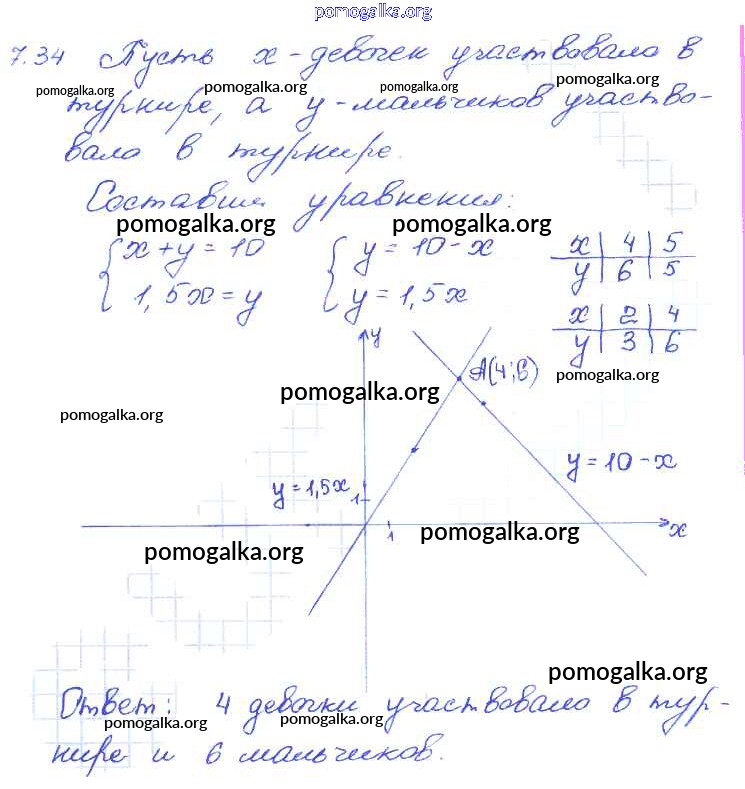 pomogalka.org
7.34 Пусть x - девочек участвовало в
pomogalka.org pomogalka.org pomogalka.org
турнире, а y - мальчиков участво-
вало в турнире.
Составим уравнения:
pomogalka.org pomogalka.org
{ x + y = 10 { y = 10 - x x | 4 | 5
1,5x = y y = 1,5x y | 6 | 5
x | 2 | 4
y | 3 | 6
y
A(4;6) pomogalka.org
pomogalka.org
pomogalka.org
y = 10 - x
y = 1,5x 1
1 x
pomogalka.org
pomogalka.org
pomogalka.org
Ответ: 4 девочки участвовало в тур-
pomogalka.org pomogalka.org
нире и 6 мальчиков.